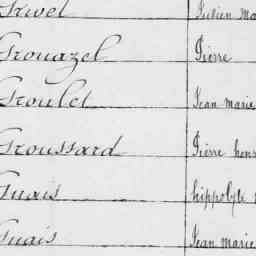 Grivel Julien Ma
Grouazel Pierre
Groulet Jean marie
Groussard Pierre henr
Guais hippolyte
Guais Jean Marie